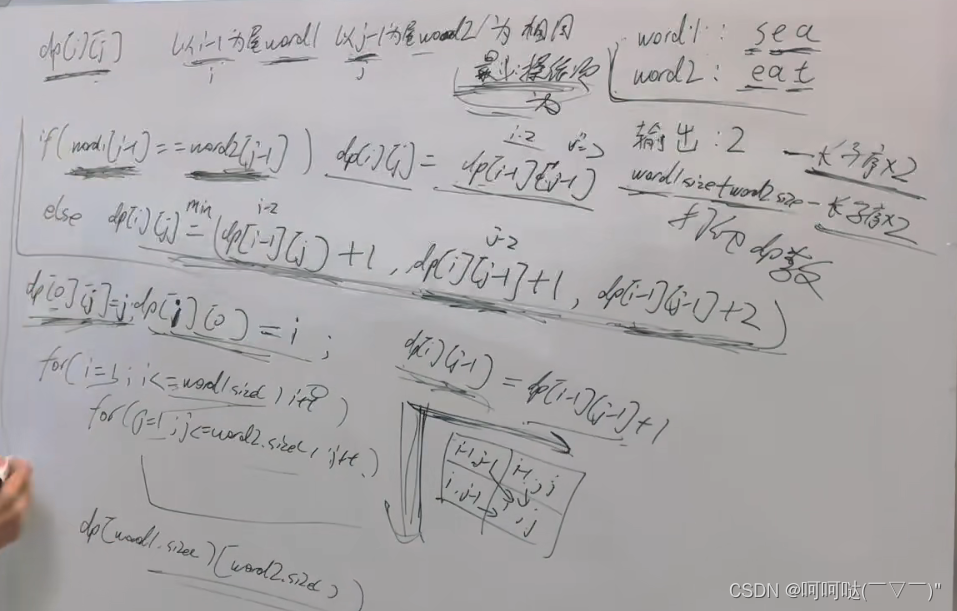 dp[i][j] 以i-1为尾word1 以j-1为尾word2 为相同
i j
最少操作
为
word1: sea
word2: eat
输出:2
if(word1[i-1]==word2[j-1]) dp[i][j]= dp[i-1][j-1]
i-2 j-2
word1size+word2size-长子序×2
else dp[i][j]=min(dp[i-1][j]+1, dp[i][j-1]+1, dp[i-1][j-1]+2)
i-2 j-2
dp[0][j]=j; dp[i][0]=i;
for(i=1; i<=word1.size; i++)
for(j=1; j<=word2.size; j++)
dp[i][j-1] = dp[i-1][j-1]+1
i-1,j-1 i-1,j
i,j-1 i,j
dp[word1.size][word2.size]
CSDN @呵呵哒(￣▽￣)"